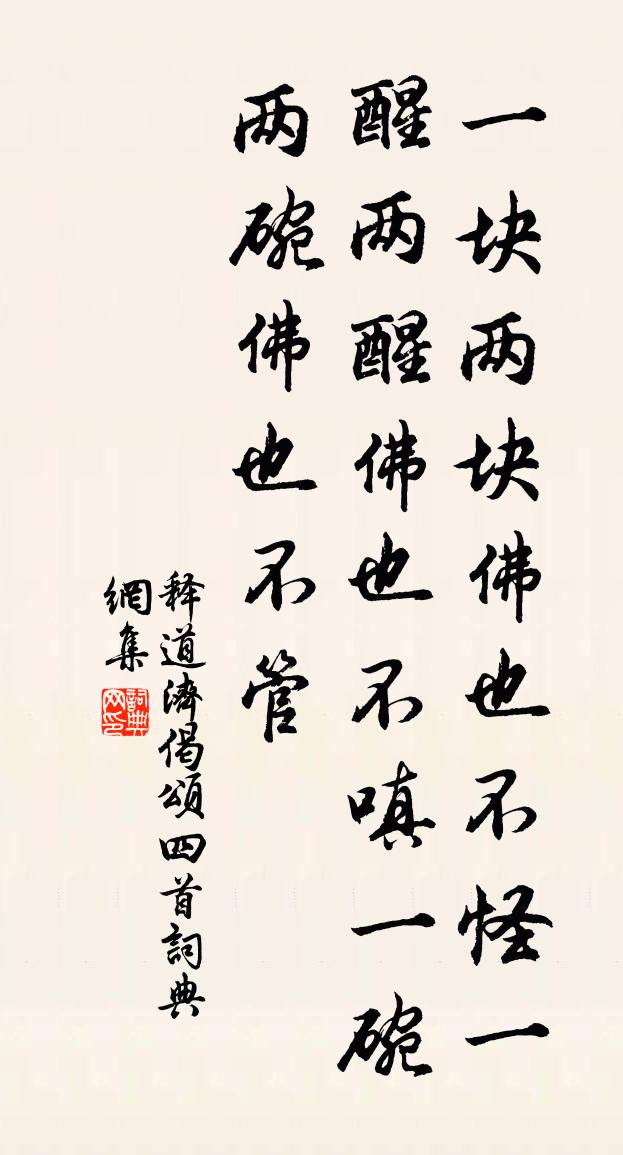 一块两块佛也不怪一
醒两醒佛也不嗔一碗
两碗佛也不管
释道濟偈頌四首詞典
網集
詞典
网印